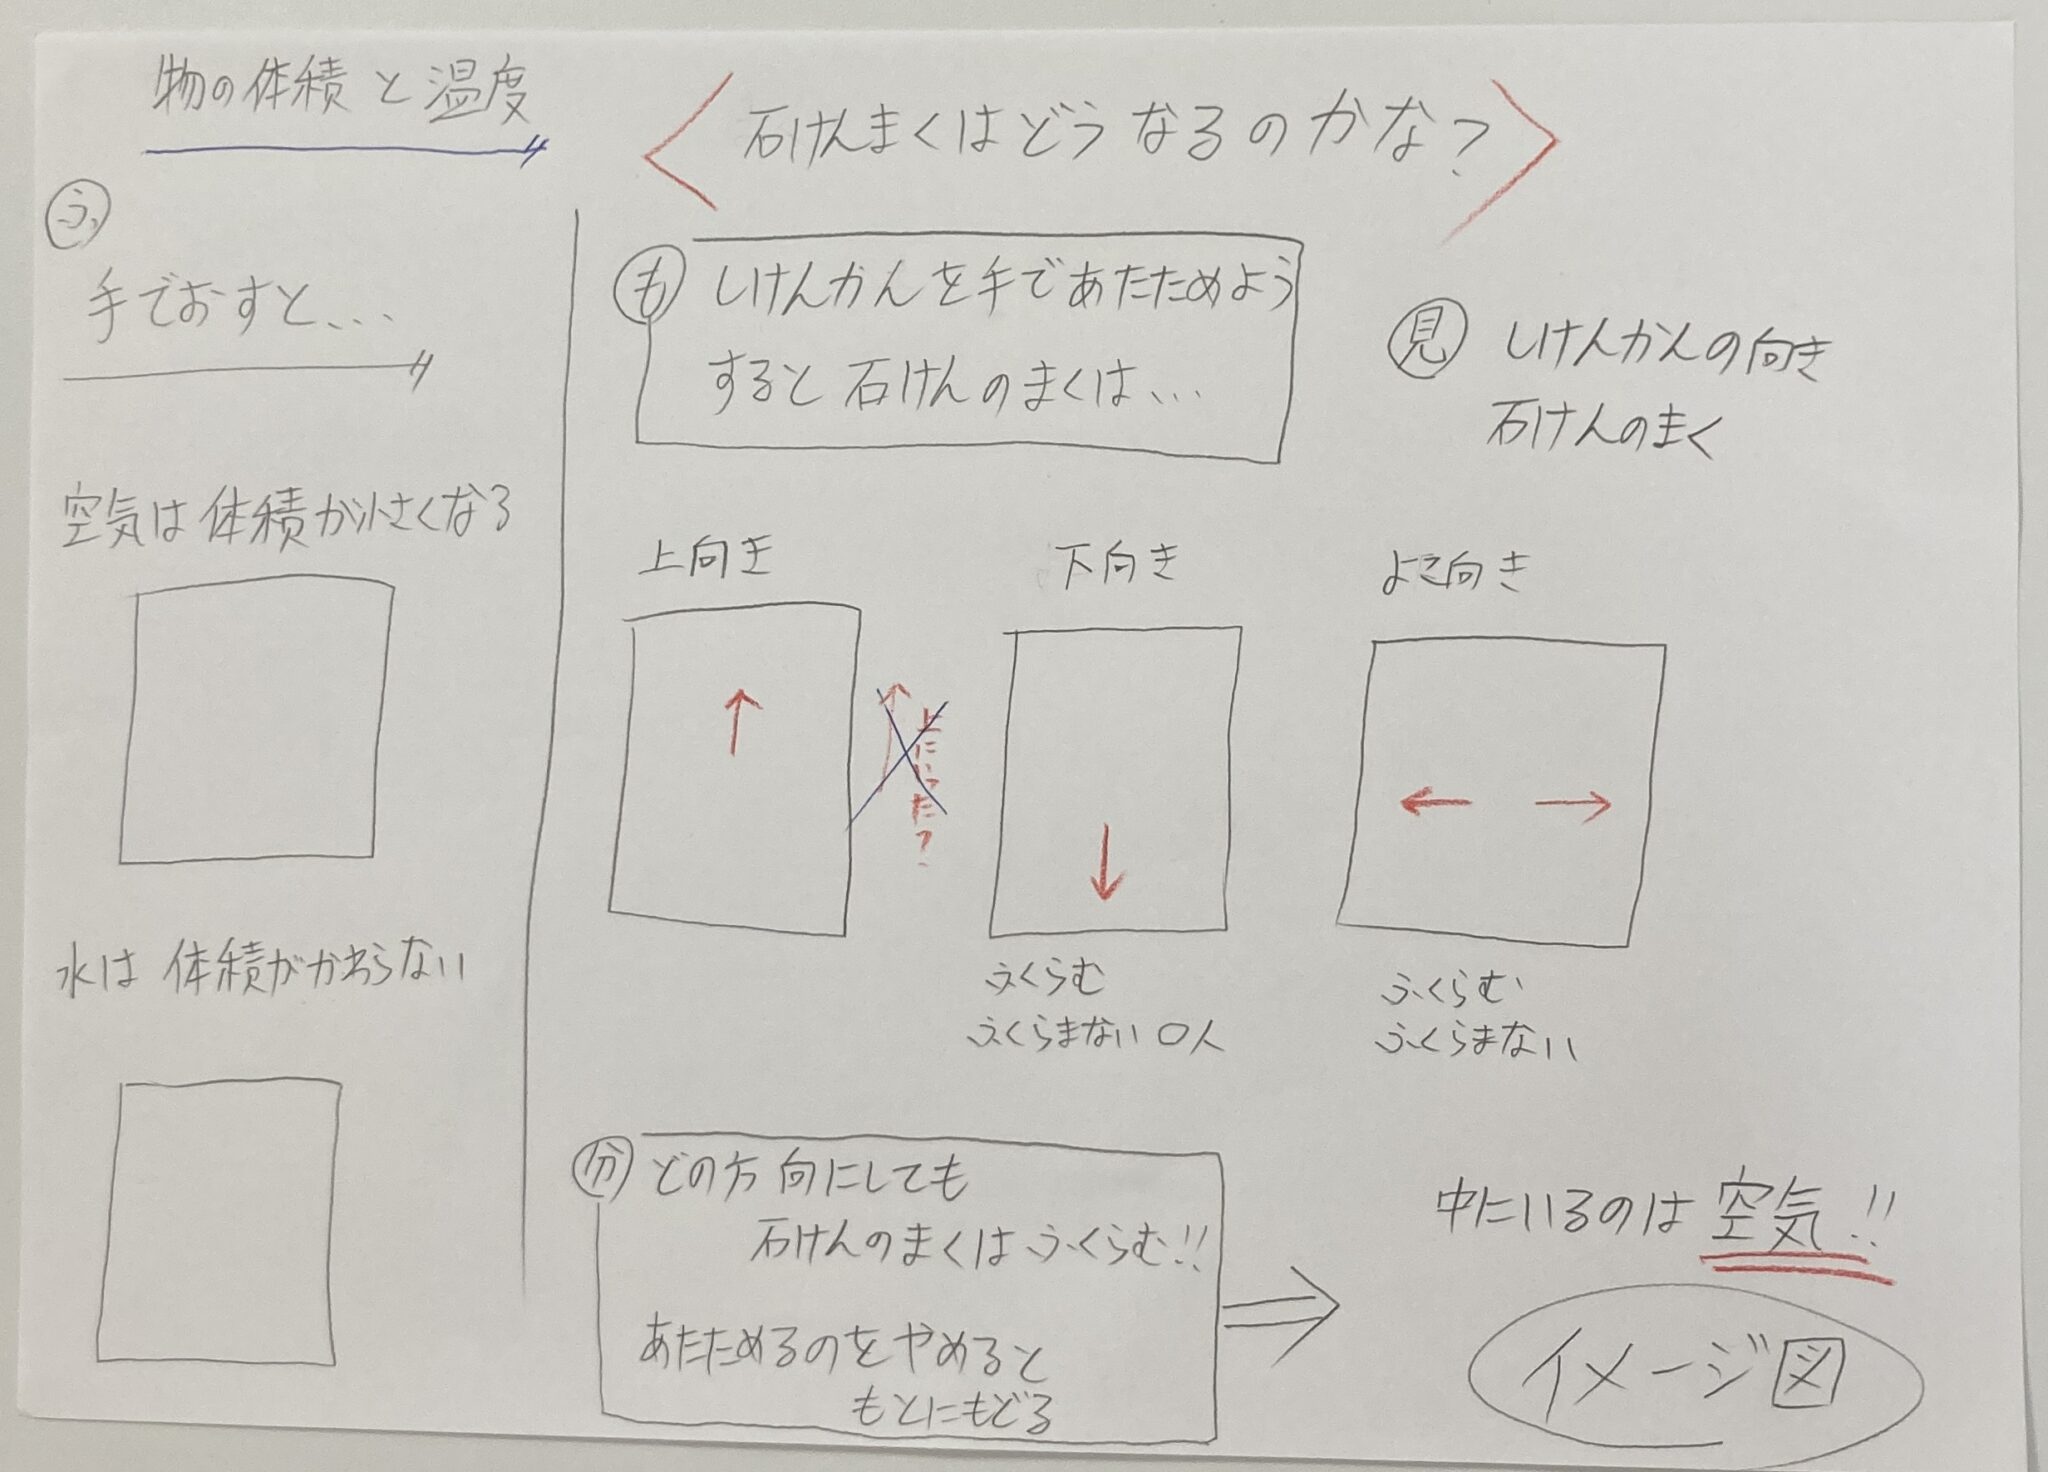 物の体積と温度
ふ
手でおすと...
空気は体積が小さくなる
水は体積がかわらない
石けんまくはどうなるのかな?
も しけんかんを手であたためよう
すると石けんのまくは...
見 しけんかんの向き
石けんのまく
上向き
上にいった?
下向き
ふくらむ
ふくらまない 0人
よこ向き
ふくらむ
ふくらまない
分 どの方向にしても
石けんのまくはふくらむ!!
あたためるのをやめると
もとにもどる
中にいるのは空気!!
イメージ図